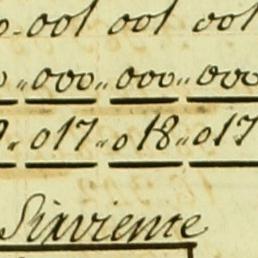 001 001 001
000 000 000
017 018 017
Sirviente